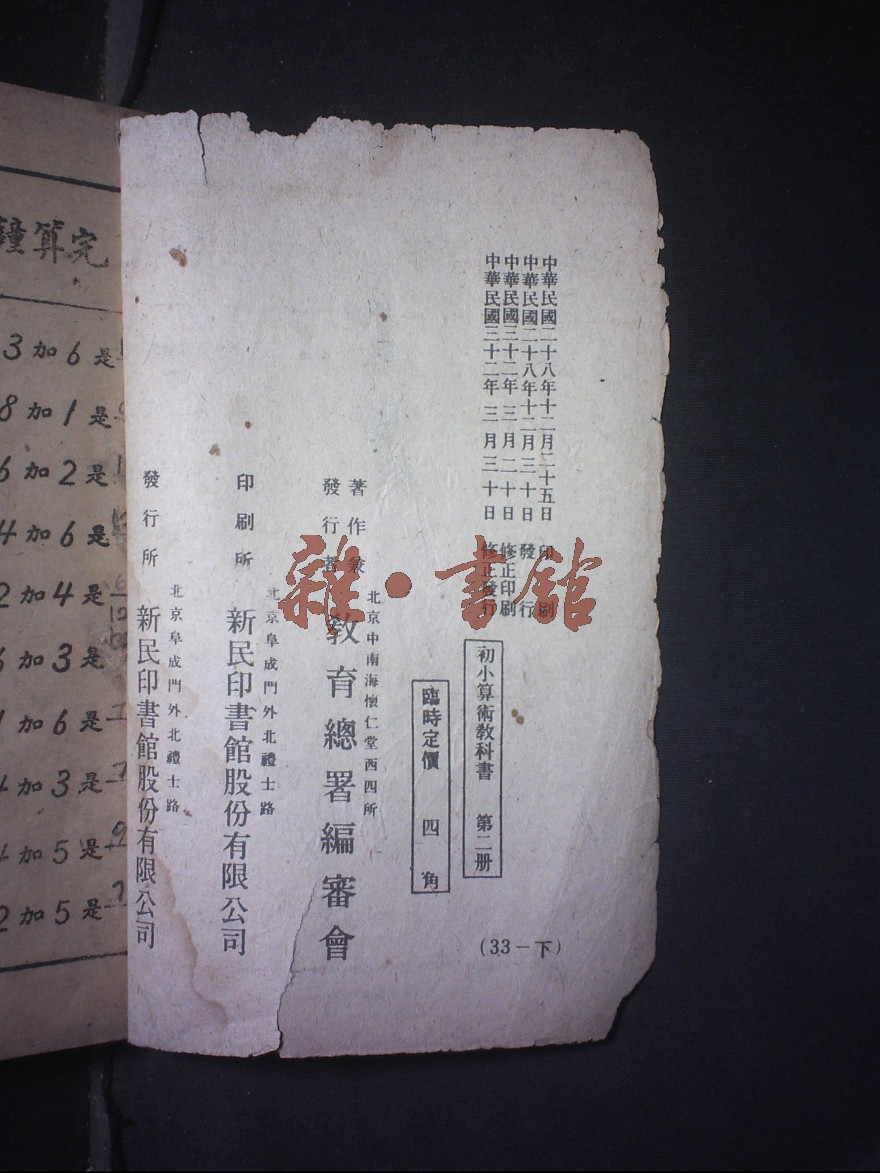 中華民國二十八年十二月二十五日 印刷
中華民國二十八年十二月三十日 發行
中華民國三十二年三月二十日 修正印刷
中華民國三十二年三月三十日 修正發行
初小算術教科書 第二册
臨時定價 四角
(33－下)
著作兼
發行者
北京中南海懷仁堂西四所
教育總署編審會
印刷所
北京阜成門外北禮士路
新民印書館股份有限公司
發行所
北京阜成門外北禮士路
新民印書館股份有限公司
雜·書館
算完
3加6是
8加1是
6加2是
4加6是
2加4是
加3是
加6是
加3是
加5是
2加5是